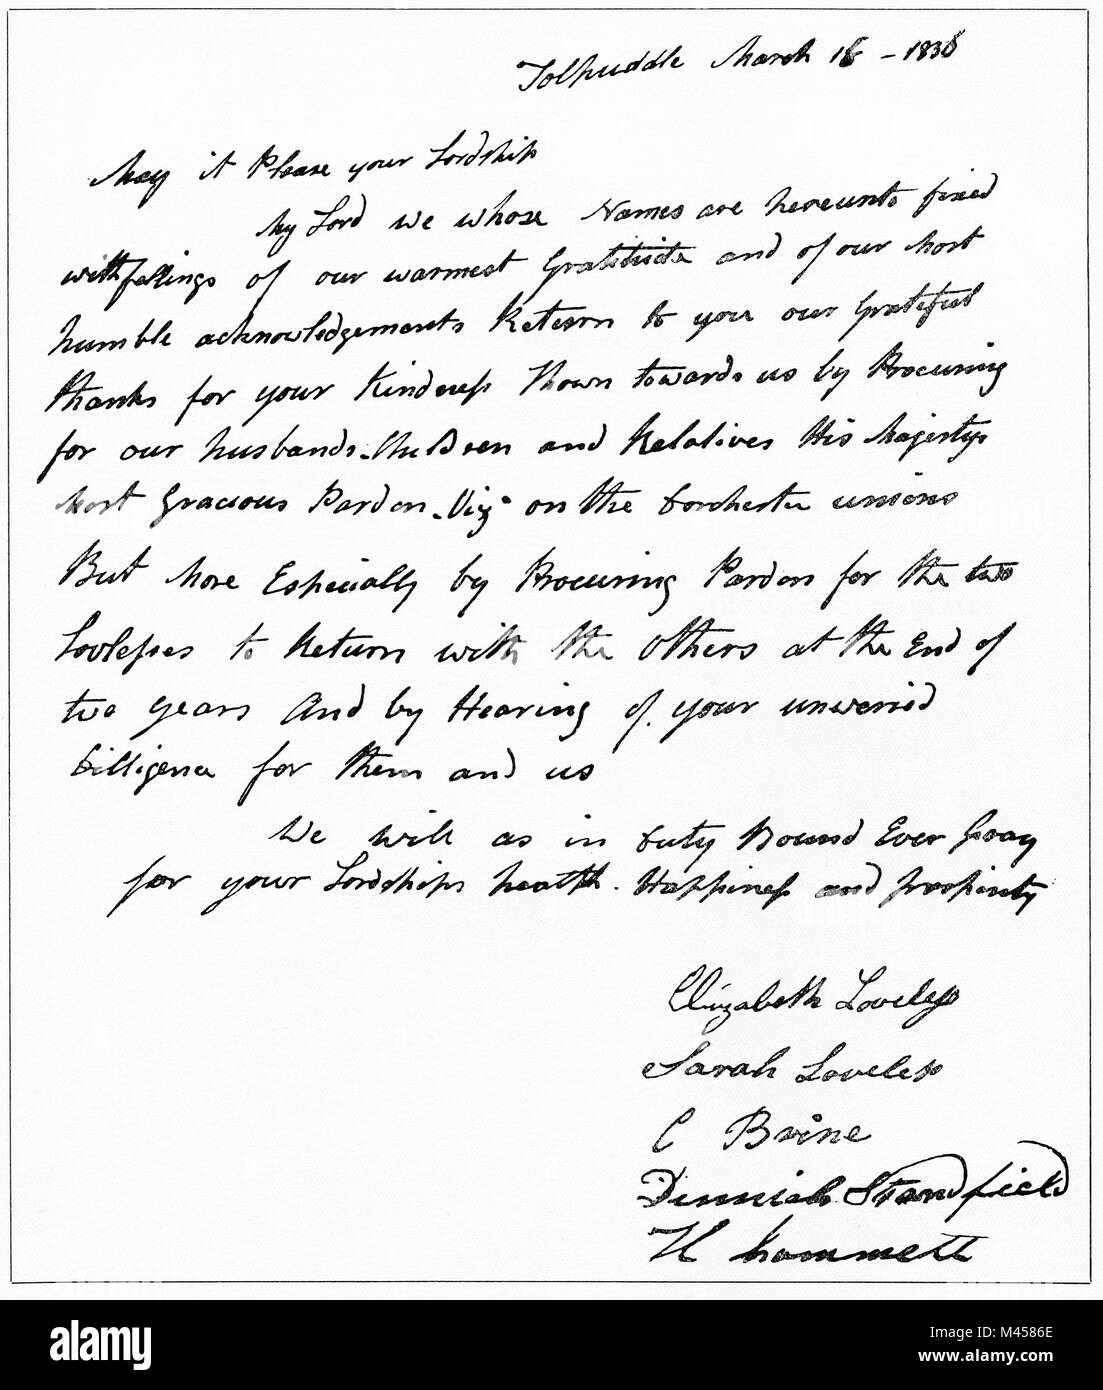 Tolpuddle March 18 - 1836
May it Please your Lordship
My Lord we whose Names are hereunto fixed
with fellings of our warmest Gratitude and of our Most
humble acknowledgements Return to you our Grateful
thanks for your Kindness Shown towards us by Procuring
for our husbands Children and Relatives His Majestys
Most Gracious Pardon Viz on the Dorchester unions
But More Especially by Procuring Pardon for the two
Lovlesses to Return with the Others at the End of
two years And by Hearing of your unweried
Dilligence for them and us
We will as in Duty Bound Ever Pray
for your Lordships health. Happiness and prosperity
Elizabeth Loveless
Sarah Loveless
C Brine
Standfield
H Hammett
alamy
Image ID: M4586E
www.alamy.com